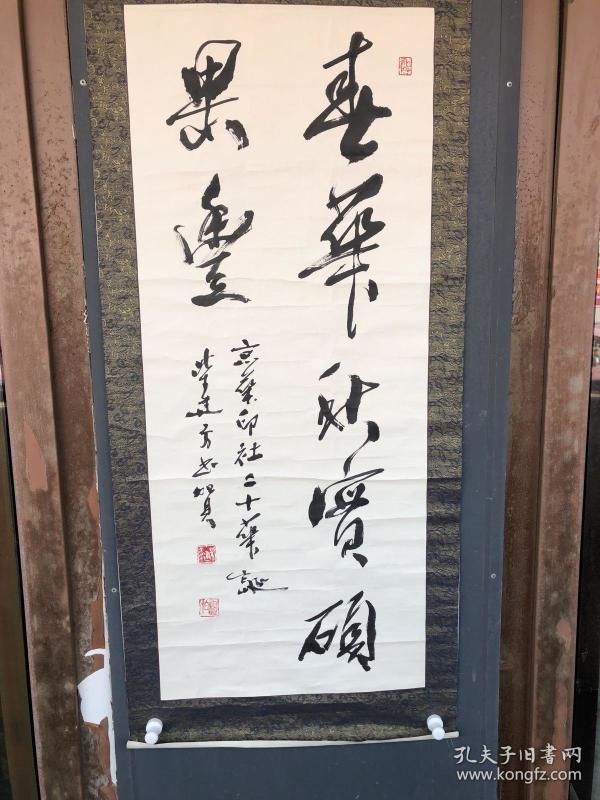 春華秋實碩
果豐
京華印社二十華誕
建方書賀
孔夫子旧書网
www.kongfz.com